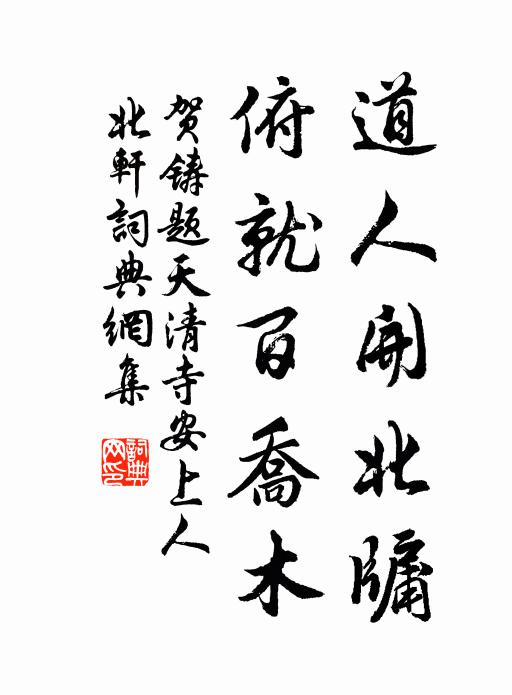 道人開北牖
俯就百喬木
賀鑄題天清寺安上人
北軒詞典網集
詞典
网印